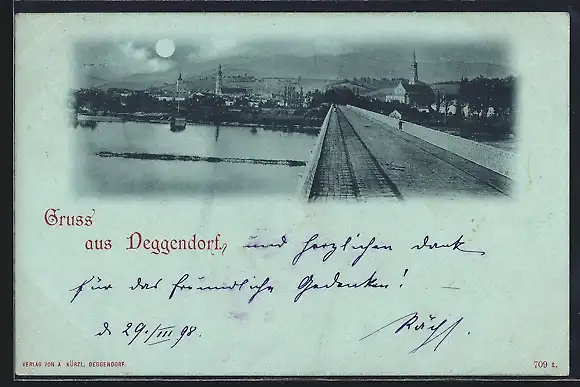 Gruss
aus Deggendorf, und herzlichen dank
für das freundliche Gedenken!
d 29./III 98.
VERLAG VON A KÜRZL, DEGGENDORF.
709 t.